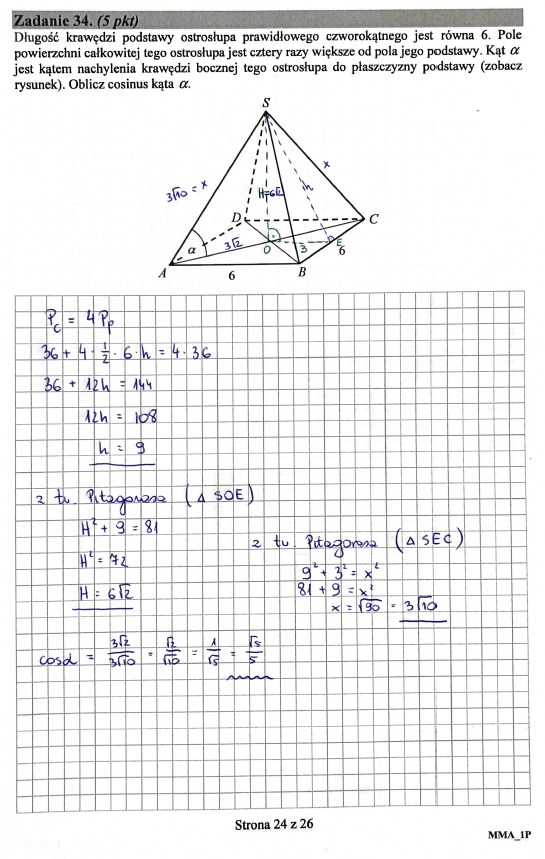 Zadanie 34. (5 pkt)
Długość krawędzi podstawy ostrosłupa prawidłowego czworokątnego jest równa 6. Pole
powierzchni całkowitej tego ostrosłupa jest cztery razy większe od pola jego podstawy. Kąt α
jest kątem nachylenia krawędzi bocznej tego ostrosłupa do płaszczyzny podstawy (zobacz
rysunek). Oblicz cosinus kąta α.
S
3√10 = x
x
H=6√2
h
D
C
α
3√2
O
3
E
6
A
6
B
P_c = 4P_p
36 + 4 · 1/2 · 6 · h = 4 · 36
36 + 12h = 144
12h = 108
h = 9
z tw. Pitagorasa (Δ SOE)
H² + 9 = 81
H² = 72
H = 6√2
z tw. Pitagorasa (Δ SEC)
9² + 3² = x²
81 + 9 = x²
x = √90 = 3√10
cosα = 3√2/3√10 = √2/√10 = 1/√5 = √5/5
Strona 24 z 26
MMA_1P